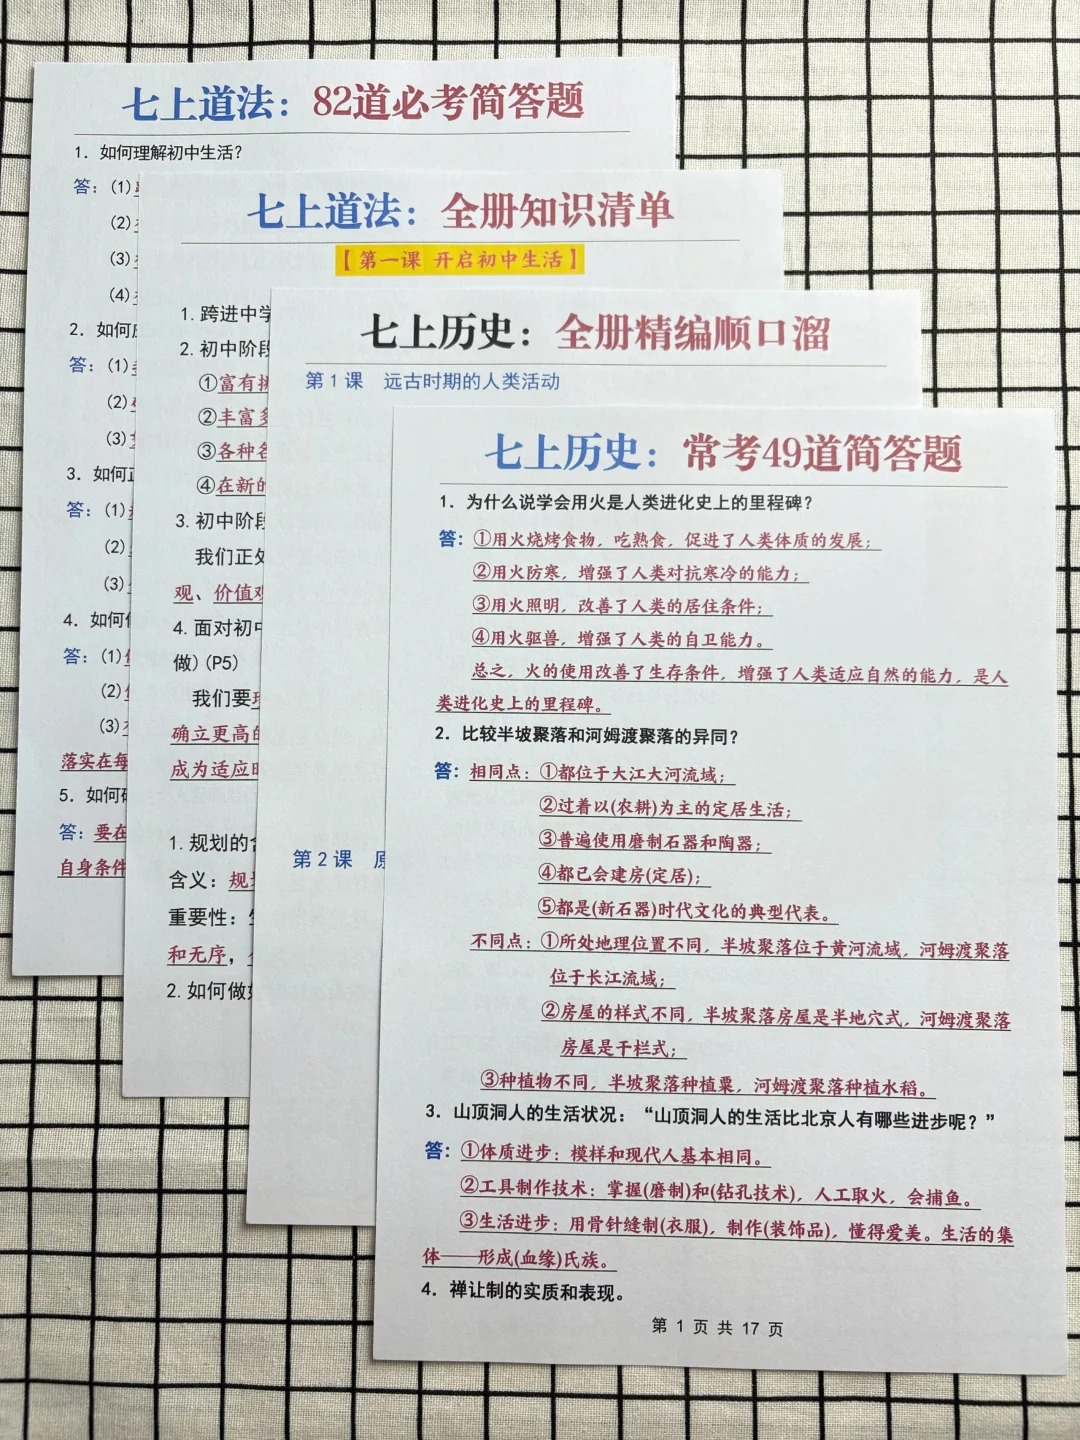 七上道法：82道必考简答题
1. 如何理解初中生活？
答：(1)
(2)
(3)
(4)
2. 如何
答：(1)
(2)
(3)
3. 如何正
答：(1)
(2)
(3)
4. 如何
答：(1)
(2)
(3)
落实在每
5. 如何
答：要在
自身条件
七上道法：全册知识清单
【第一课 开启初中生活】
1. 跨进中学
2. 初中阶段
①富有挑
②丰富多
③各种各
④在新的
3. 初中阶段
我们正处
观、价值观
4. 面对初中
做）(P5)
我们要
确立更高的
成为适应时
1. 规划的含
含义：规
重要性：
和无序，
2. 如何做好
七上历史：全册精编顺口溜
第1课 远古时期的人类活动
第2课 原
七上历史：常考49道简答题
1. 为什么说学会用火是人类进化史上的里程碑？
答：①用火烧烤食物，吃熟食，促进了人类体质的发展；
②用火防寒，增强了人类对抗寒冷的能力；
③用火照明，改善了人类的居住条件；
④用火驱兽，增强了人类的自卫能力。
总之，火的使用改善了生存条件，增强了人类适应自然的能力，是人
类进化史上的里程碑。
2. 比较半坡聚落和河姆渡聚落的异同？
答：相同点：①都位于大江大河流域；
②过着以(农耕)为主的定居生活；
③普遍使用磨制石器和陶器；
④都已会建房(定居)；
⑤都是(新石器)时代文化的典型代表。
不同点：①所处地理位置不同，半坡聚落位于黄河流域，河姆渡聚落
位于长江流域；
②房屋的样式不同，半坡聚落房屋是半地穴式，河姆渡聚落
房屋是干栏式；
③种植物不同，半坡聚落种植粟，河姆渡聚落种植水稻。
3. 山顶洞人的生活状况：“山顶洞人的生活比北京人有哪些进步呢？”
答：①体质进步：模样和现代人基本相同。
②工具制作技术：掌握(磨制)和(钻孔技术)，人工取火，会捕鱼。
③生活进步：用骨针缝制(衣服)，制作(装饰品)，懂得爱美。生活的集
体——形成(血缘)氏族。
4. 禅让制的实质和表现。
第 1 页 共 17 页